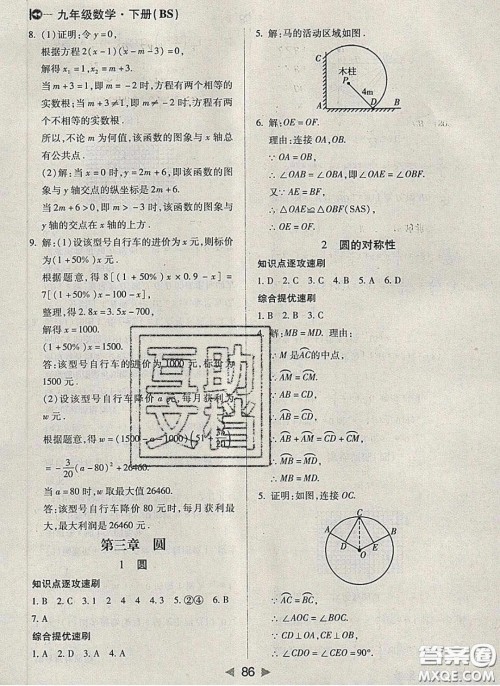 九年级数学·下册(BS)
8. (1)证明:令y=0,
根据方程2(x-1)(x-m-3)=0.
解得x₁=1,x₂=m+3.
当m+3=1,即m=-2时,方程有两个相等的
实数根;当m+3≠1,即m≠-2时,方程有两
个不相等的实数根.
所以,不论m为何值,该函数的图象与x轴总
有公共点.
(2)解:当x=0时,y=2m+6,即该函数的图象
与y轴交点的纵坐标是2m+6.
当2m+6>0,即m>-3时,该函数的图象与
y轴的交点在x轴的上方.
9. 解:(1)设该型号自行车的进价为x元,则标价
为(1+50%)x元.
根据题意,得8[(1+50%)x×0.9-x]=
7[(1+50%)x-100-x],
整理,得2.8x=3.5x-700,
解得x=1000.
(1+50%)x=1500.
答:该型号自行车的进价为1000元,标价为
1500元.
(2)设该型号自行车降价a元,每月获利为
w元.
=-3/20(a-80)²+26460.
当a=80时,w取最大值26460.
答:该型号自行车降价80元时,每月获利最
大,最大利润是26460元.
第三章 圆
1 圆
知识点逐攻速刷
1. B 2. C 3. 4 4. 2 5. ②④ 6. D
7. B
综合提优速刷
1. A 2. C 3. A 4. B
5. 解:马的活动区域如图.
木柱
P
4m
A
D
B
C
6. 解:OE=OF.
理由:连接OA,OB.
∵OA=OB,
∴∠OAB=∠OBA,即∠OAE=∠OBF.
又∵AE=BF,
∴△OAE≌△OBF(SAS),
∴OE=OF.
2 圆的对称性
知识点逐攻速刷
1. D 2. C 3. C 4. B 5. A 6. D
综合提优速刷
1. B 2. B 3. C
4. 解:MB=MD. 理由:
∵M是AC的中点,
∴AM=CM.
∵AB=CD,
∴AB+AM=CD+CM,
∴MB=MD,
∴MB=MD.
5. 证明:如图,连接OC.
C
A
B
D
E
O
∵AC=BC,
∴∠AOC=∠BOC.
∵CD⊥OA,CE⊥OB,
∴∠CDO=∠CEO=90°.
互助
文档
86
答案圈
MXQE.COM